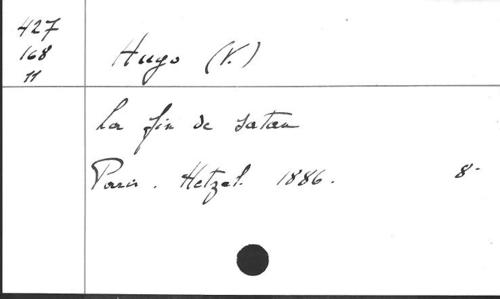 427
168
11
Hugo (V.)
La fin de Satan
Paris. Hetzel. 1886. 8-